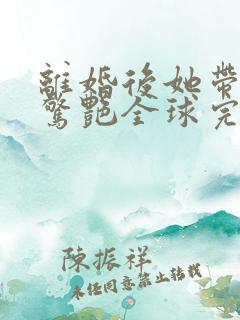 離婚後她帶
驚艷全球完
陳振祥
未任同意禁止轉載